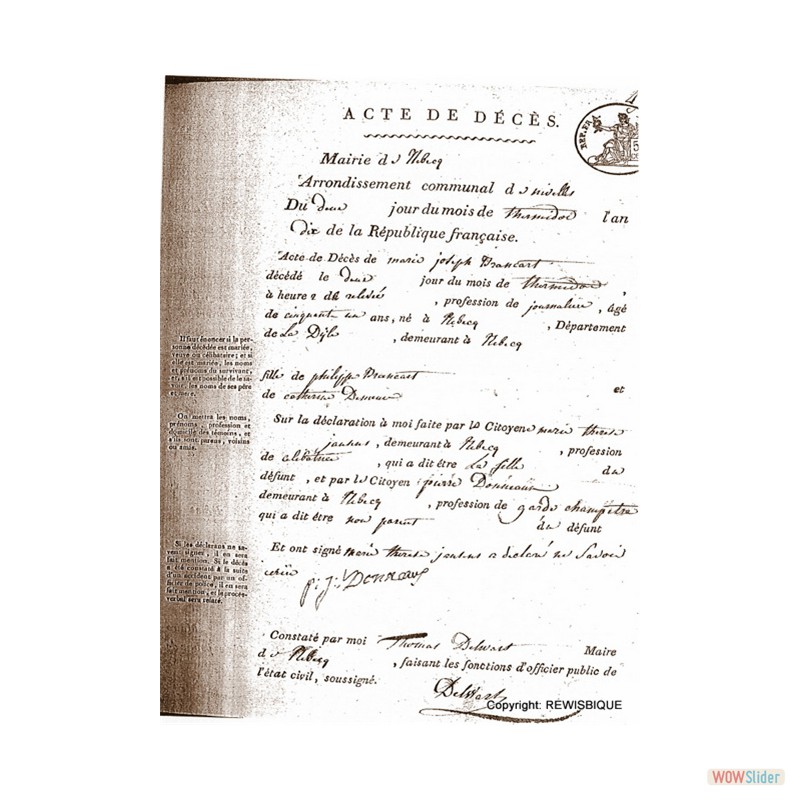 ACTE DE DÉCÈS.
REP. FR
Mairie de Rebecq
Arrondissement communal de nivelles
Du deux jour du mois de thermidor l'an
dix de la République française.
Acte de Décès de marie joseph Brancart
décédé le deux jour du mois de thermidor,
à heure 2 de relevée, profession de journaliere, âgé
de cinquante un ans, né à Rebecq, Département
de La Dÿle, demeurant à Rebecq
fille de philippe Brancart et
de catherine
Sur la déclaration à moi faite par la Citoyenne marie therese
jansens, demeurant à Rebecq, profession
de celibataire, qui a dit être La fille du
défunt, et par le Citoyen pierre Donneaux
demeurant à Rebecq, profession de garde champetre
qui a dit être non parent du défunt
Et ont signé marie therese jansens a declaré ne Savoir
ecrire
p: j: Donneaux
Constaté par moi Thomas Delwart Maire
de Rebecq, faisant les fonctions d'officier public de
l'état civil, soussigné.
Delwart
Il faut énoncer si la per-
sonne décédée est mariée,
veuve ou célibataire; et si
elle est mariée, les noms
et prénoms du survivant,
et, s'il est possible de le sa-
voir, les noms de ses père
et mère.
On mettra les noms,
prénoms, profession et
domicile des témoins, et
s'ils sont parens, voisins
ou amis.
Si les déclarans ne sa-
vent signer, il en sera
fait mention. Si le décès
a été constaté à la suite
d'un accident par un of-
ficier de police, il en sera
fait mention, et le procès-
verbal sera relaté.
Copyright: REWISBIQUE
WOWSlider